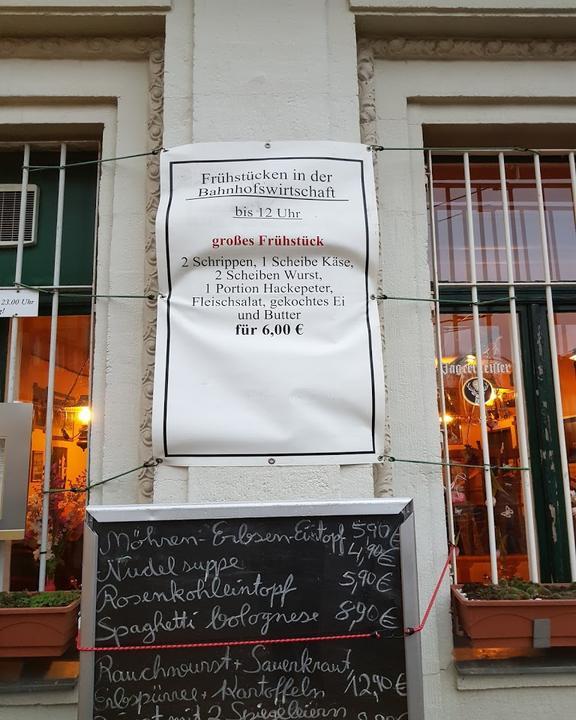 Frühstücken in der
Bahnhofswirtschaft
bis 12 Uhr
großes Frühstück
2 Schrippen, 1 Scheibe Käse,
2 Scheiben Wurst,
1 Portion Hackepeter,
Fleischsalat, gekochtes Ei
und Butter
für 6,00 €
23.00 Uhr
Jägermeister
Möhren-Erbsen-Eintopf 5,90€
Nudelsuppe 4,90€
Rosenkohleintopf 5,90€
Spaghetti bolognese 8,90€
Rauchwurst + Sauerkraut
Erbspürree + Kartoffeln 12,90€
mit 2 Spiegeleiern